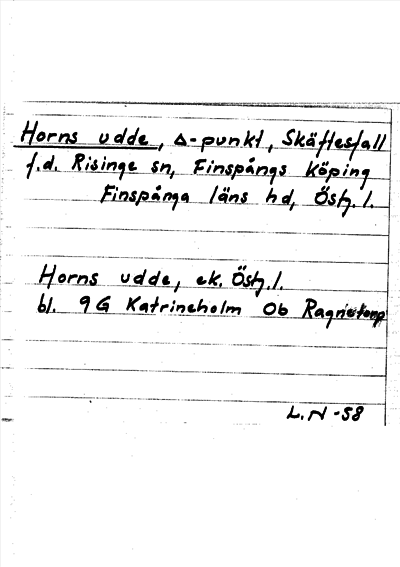 Horns udde, ∆-punkt, Skäftesfall
f.d. Risinge sn, Finspångs köping
Finspånga läns hd, Östg. l.
Horns udde, ek. Östg. l.
bl. 9G Katrineholm 0b
L.N -58